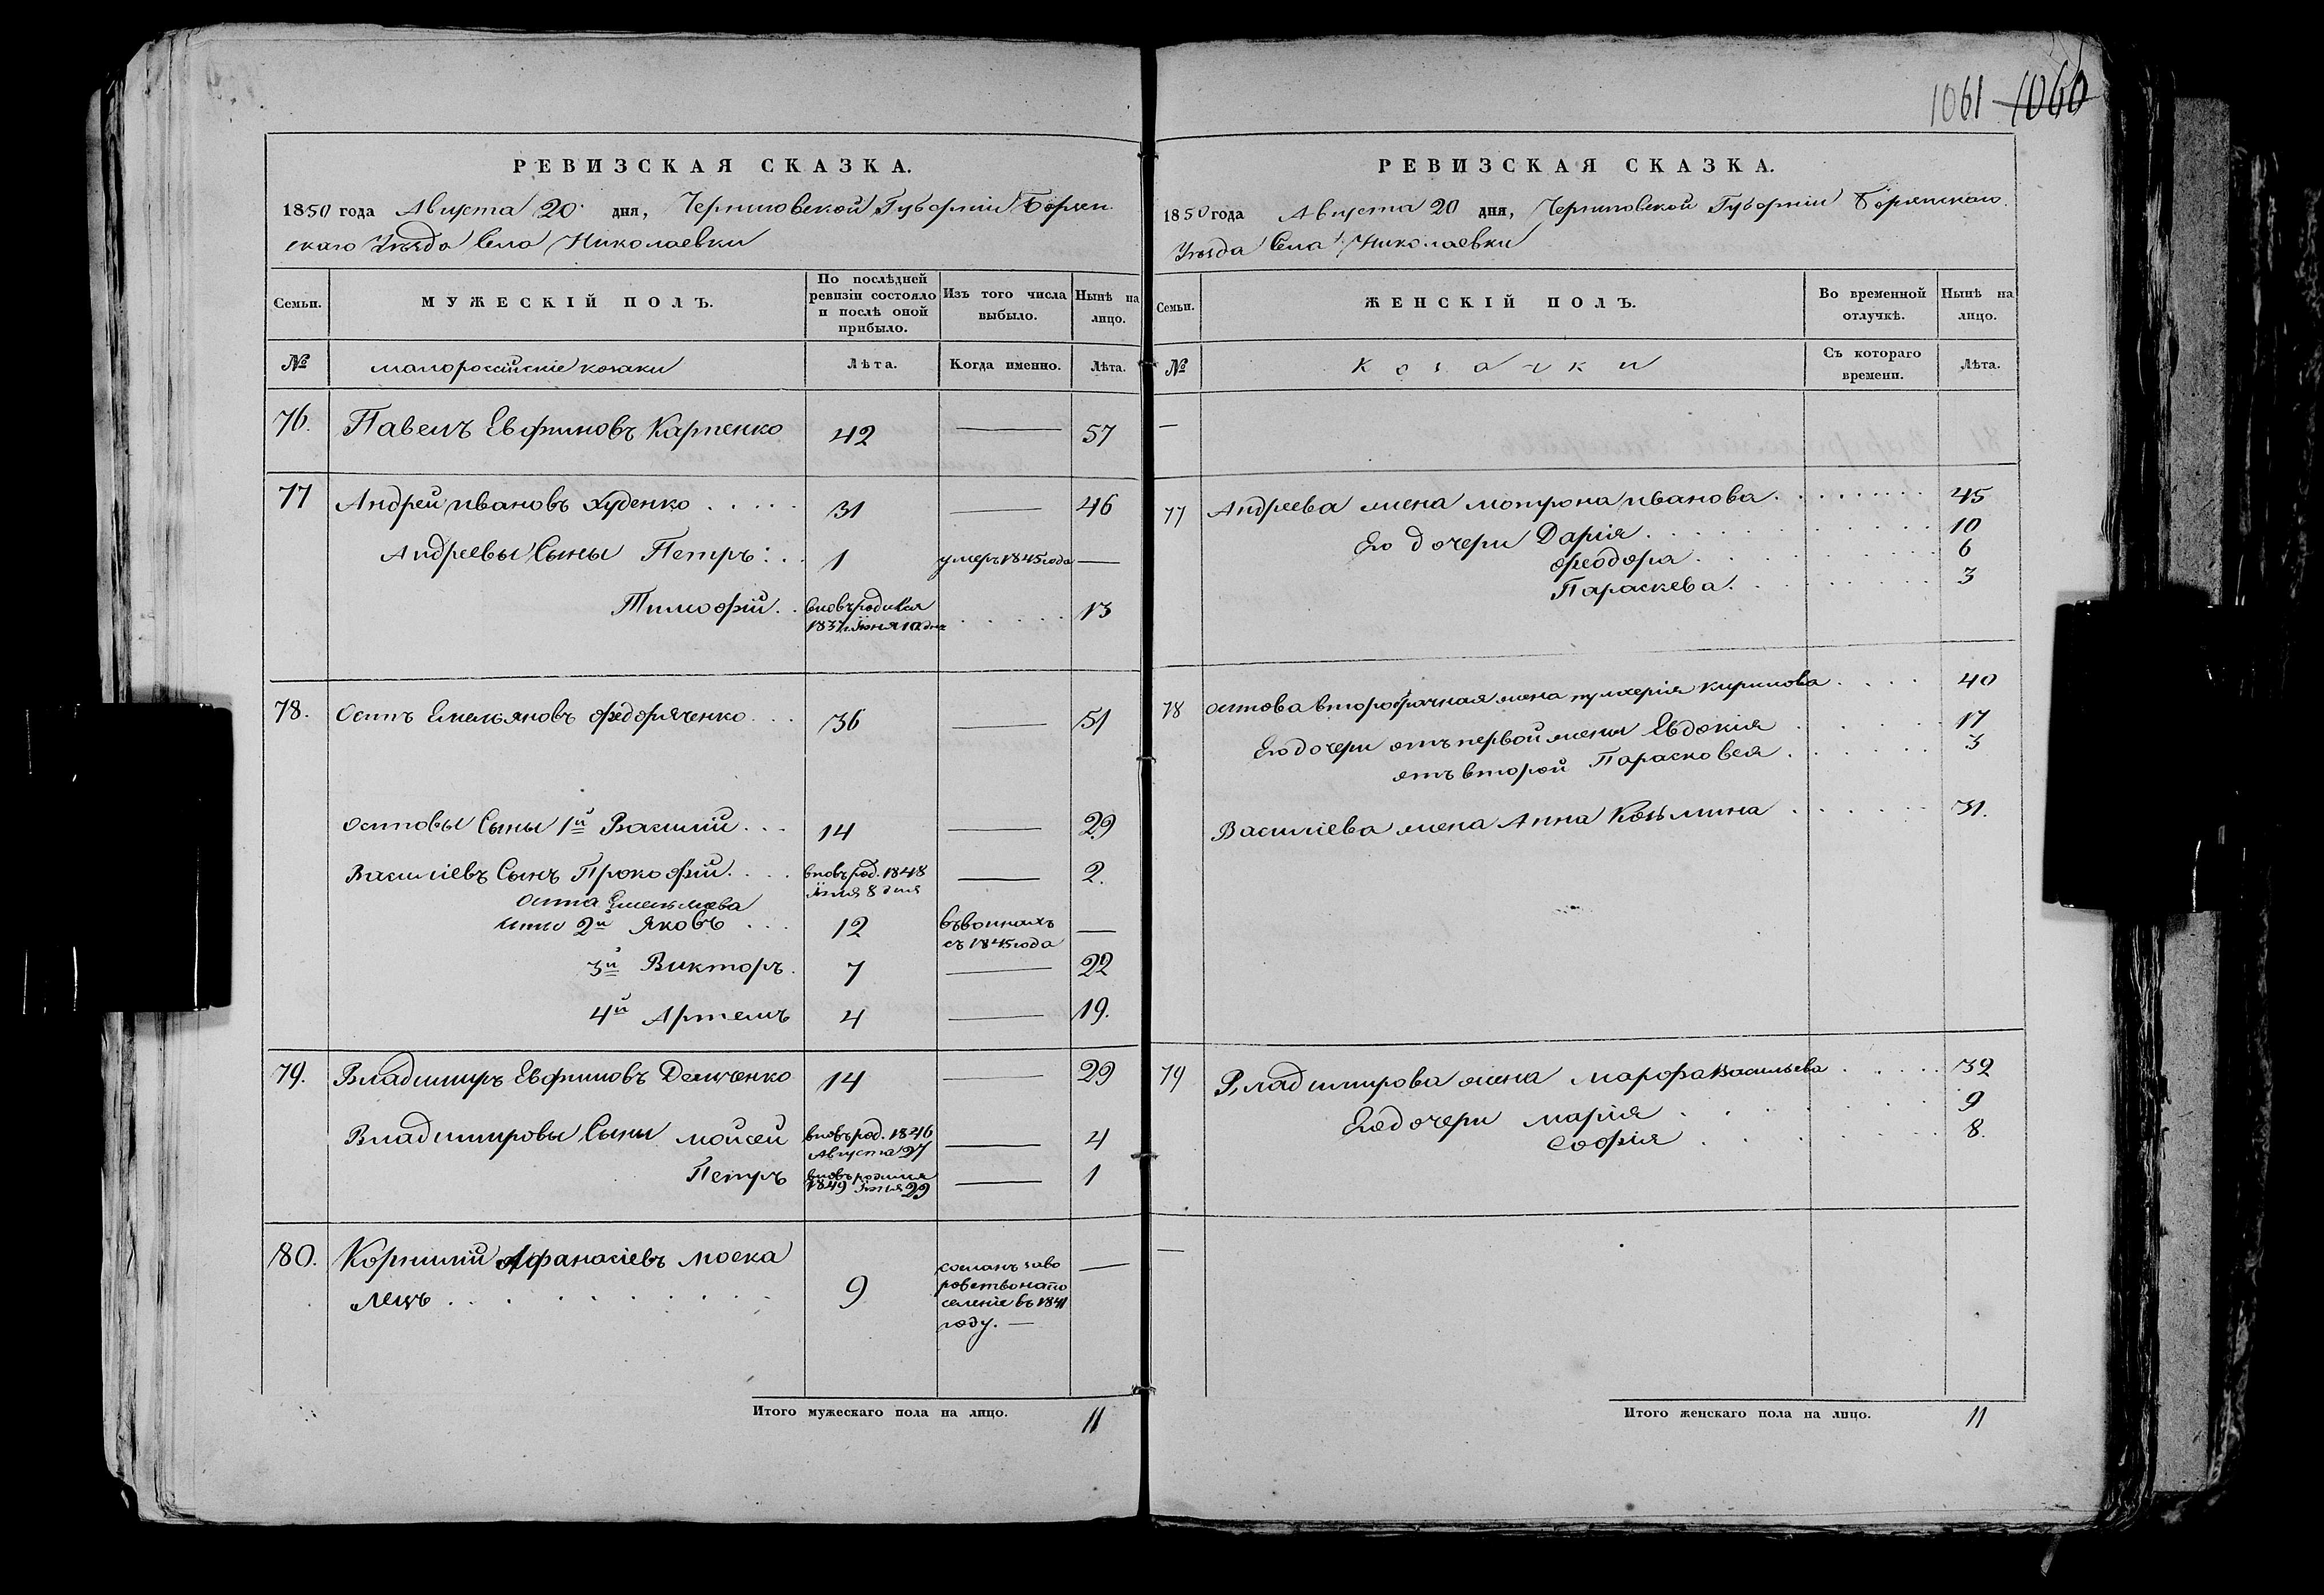 1061 1060
РЕВИЗСКАЯ СКАЗКА.
1850 года Августа 20 дня, Черниговской Губерніи Борзен
скаго Уѣзда Села Николаевки
Семьи.
МУЖЕСКІЙ ПОЛЪ.
По послѣдней ревизіи состояло и послѣ оной прибыло.
Изъ того числа выбыло.
Нынѣ на лицо.
№ малороссійскіе козаки Лѣта. Когда именно. Лѣта.
76. Павелъ Евфимовъ Карпенко 42 — 57
77 Андрей ивановъ Худенко . . . . . 31 — 46
Андреевы Сыны Петръ . . 1 умеръ 1845 года —
Тимофій . . вновь родился 1837 г. Іюня 10 дня . . . . . 13
78. Осипъ Емельяновъ Федоряченко . . . 36 — 51
Осиповы Сыны 1й Василій . . . 14 — 29
Василіевъ Сынъ Прокофій . . . . вновь род. 1848 Іюля 8 дня — 2.
Осипа Емельянова
сынъ 2й Яковъ . . . 12 въ воинахъ съ 1845 года —
3й Викторъ . 7 — 22
4й Артемъ 4 — 19.
79. Владимиръ Евфимовъ Демченко 14 — 29
Владимировы Сыны мойсей вновь род. 1846 Августа 27 — 4
Петръ вновь родился 1849 Іюня 29 — 1
80. Корнилій Афанасіевъ моска
лецъ . . . . . . . . . 9 сосланъ за во
ровство на по
селеніе въ 1841
году. — —
Итого мужескаго пола на лицо. 11
РЕВИЗСКАЯ СКАЗКА.
1850 года Августа 20 дня, Черниговской Губерніи Борзенскаго
Уѣзда Села Николаевки
Семьи.
ЖЕНСКІЙ ПОЛЪ.
Во временной отлучкѣ.
Нынѣ на лицо.
№ козачки Съ котораго времени. Лѣта.
—
77 Андреева жена мотрона иванова . . . . . . . . 45
Его дочери Дарія . . . . . . . . 10
Феодора . . . . . . . . 6
Параскева . . . . . . . . 3
78 Осипова второбрачная жена пулхерія Кирилова . . . . 40
Его дочери отъ первой жены Евдокія . . . . . 17
отъ второй Парасковея . . . . . . 3
Василіева жена Анна Козьмина . . . . . . 31.
79 Владимирова жена марфа Васильева . . . . . 32
Его дочери марія . . . . . . . 9
софія . . . . . . . 8.
—
Итого женскаго пола на лицо. 11